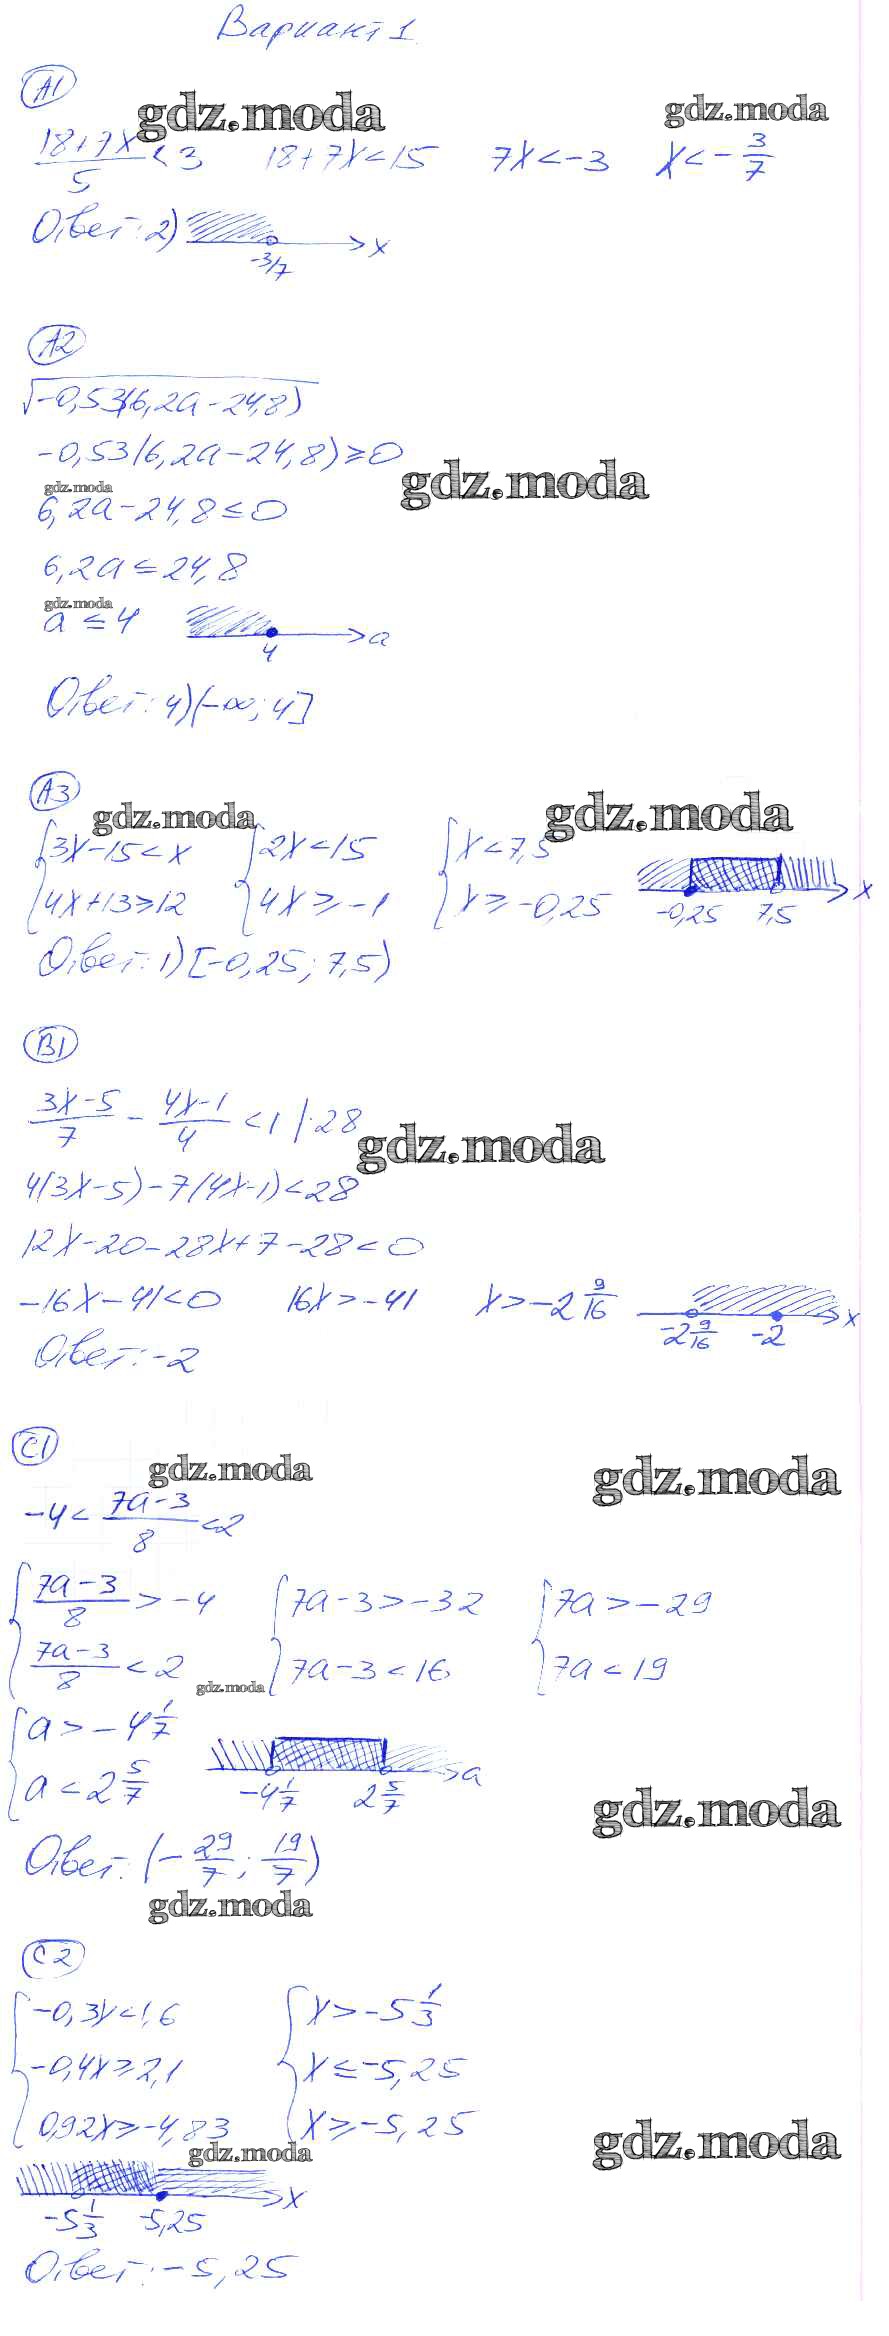 Вариант 1
A1
gdz.moda gdz.moda
(18+7x)/5 < 3 18+7x<15 7x<-3 x<-3/7
Ответ: 2) x
-3/7
A2
√(-0,53(6,2a-24,8))
-0,53(6,2a-24,8)≥0
gdz.moda gdz.moda
6,2a-24,8≤0
6,2a≤24,8
gdz.moda
a≤4 a
4
Ответ: 4)(-∞; 4]
A3
gdz.moda gdz.moda
{3x-15<x {2x<15 {x<7,5
{4x+13≥12 {4x≥-1 {x≥-0,25 -0,25 7,5 x
Ответ: 1) [-0,25; 7,5)
B1
(3x-5)/7 - (4x-1)/4 <1 |·28
gdz.moda
4(3x-5)-7(4x-1)<28
12x-20-28x+7-28<0
-16x-41<0 16x>-41 x>-2 9/16 x
-2 9/16 -2
Ответ: -2
C1
gdz.moda gdz.moda
-4< (7a-3)/8 <2
{(7a-3)/8 >-4 {7a-3>-32 {7a>-29
{(7a-3)/8 <2 {7a-3<16 {7a<19
gdz.moda
{a>-4 1/7
{a<2 5/7 -4 1/7 2 5/7 a
gdz.moda
Ответ: (-29/7; 19/7)
gdz.moda
C2
{-0,3x<1,6 {x>-5 1/3
{-0,4x≥2,1 {x≤-5,25
{0,92x≥-4,83 {x≥-5,25
gdz.moda gdz.moda
x
-5 1/3 -5,25
Ответ: -5,25